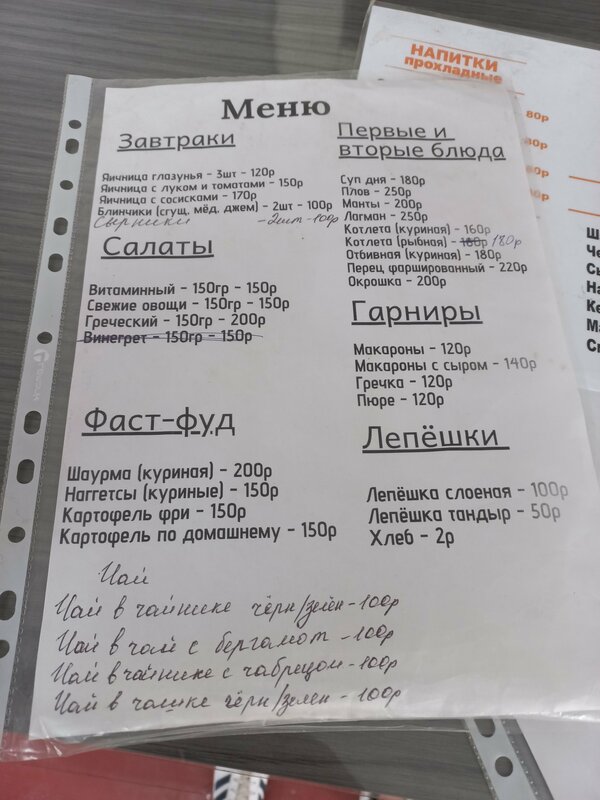 Меню
Завтраки
Яичница глазунья - 3шт - 120р
Яичница с луком и томатами - 150р
Яичница с сосисками - 170р
Блинчики (сгущ, мёд, джем) - 2шт - 100р
Сырники - 2шт - 100р
Салаты
Витаминный - 150гр - 150р
Свежие овощи - 150гр - 150р
Греческий - 150гр - 200р
Винегрет - 150гр - 150р
Фаст-фуд
Шаурма (куриная) - 200р
Наггетсы (куриные) - 150р
Картофель фри - 150р
Картофель по домашнему - 150р
Первые и
вторые блюда
Суп дня - 180р
Плов - 250р
Манты - 200р
Лагман - 250р
Котлета (куриная) - 160р
Котлета (рыбная) - 180р 180р
Отбивная (куриная) - 180р
Перец фаршированный - 220р
Окрошка - 200р
Гарниры
Макароны - 120р
Макароны с сыром - 140р
Гречка - 120р
Пюре - 120р
Лепёшки
Лепёшка слоеная - 100р
Лепёшка тандыр - 50р
Хлеб - 2р
Чай
Чай в чайнике чёрн/зелен - 100р
Чай в чай с бергамот - 100р
Чай в чайнике с чабрецом - 100р
Чай в чашке чёрн/зелен - 100р
НАПИТКИ
прохладные
80р